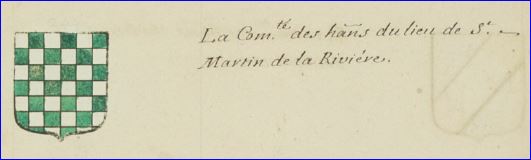 La Com.té des hãns du lieu de St. —
Martin de la Riviére.